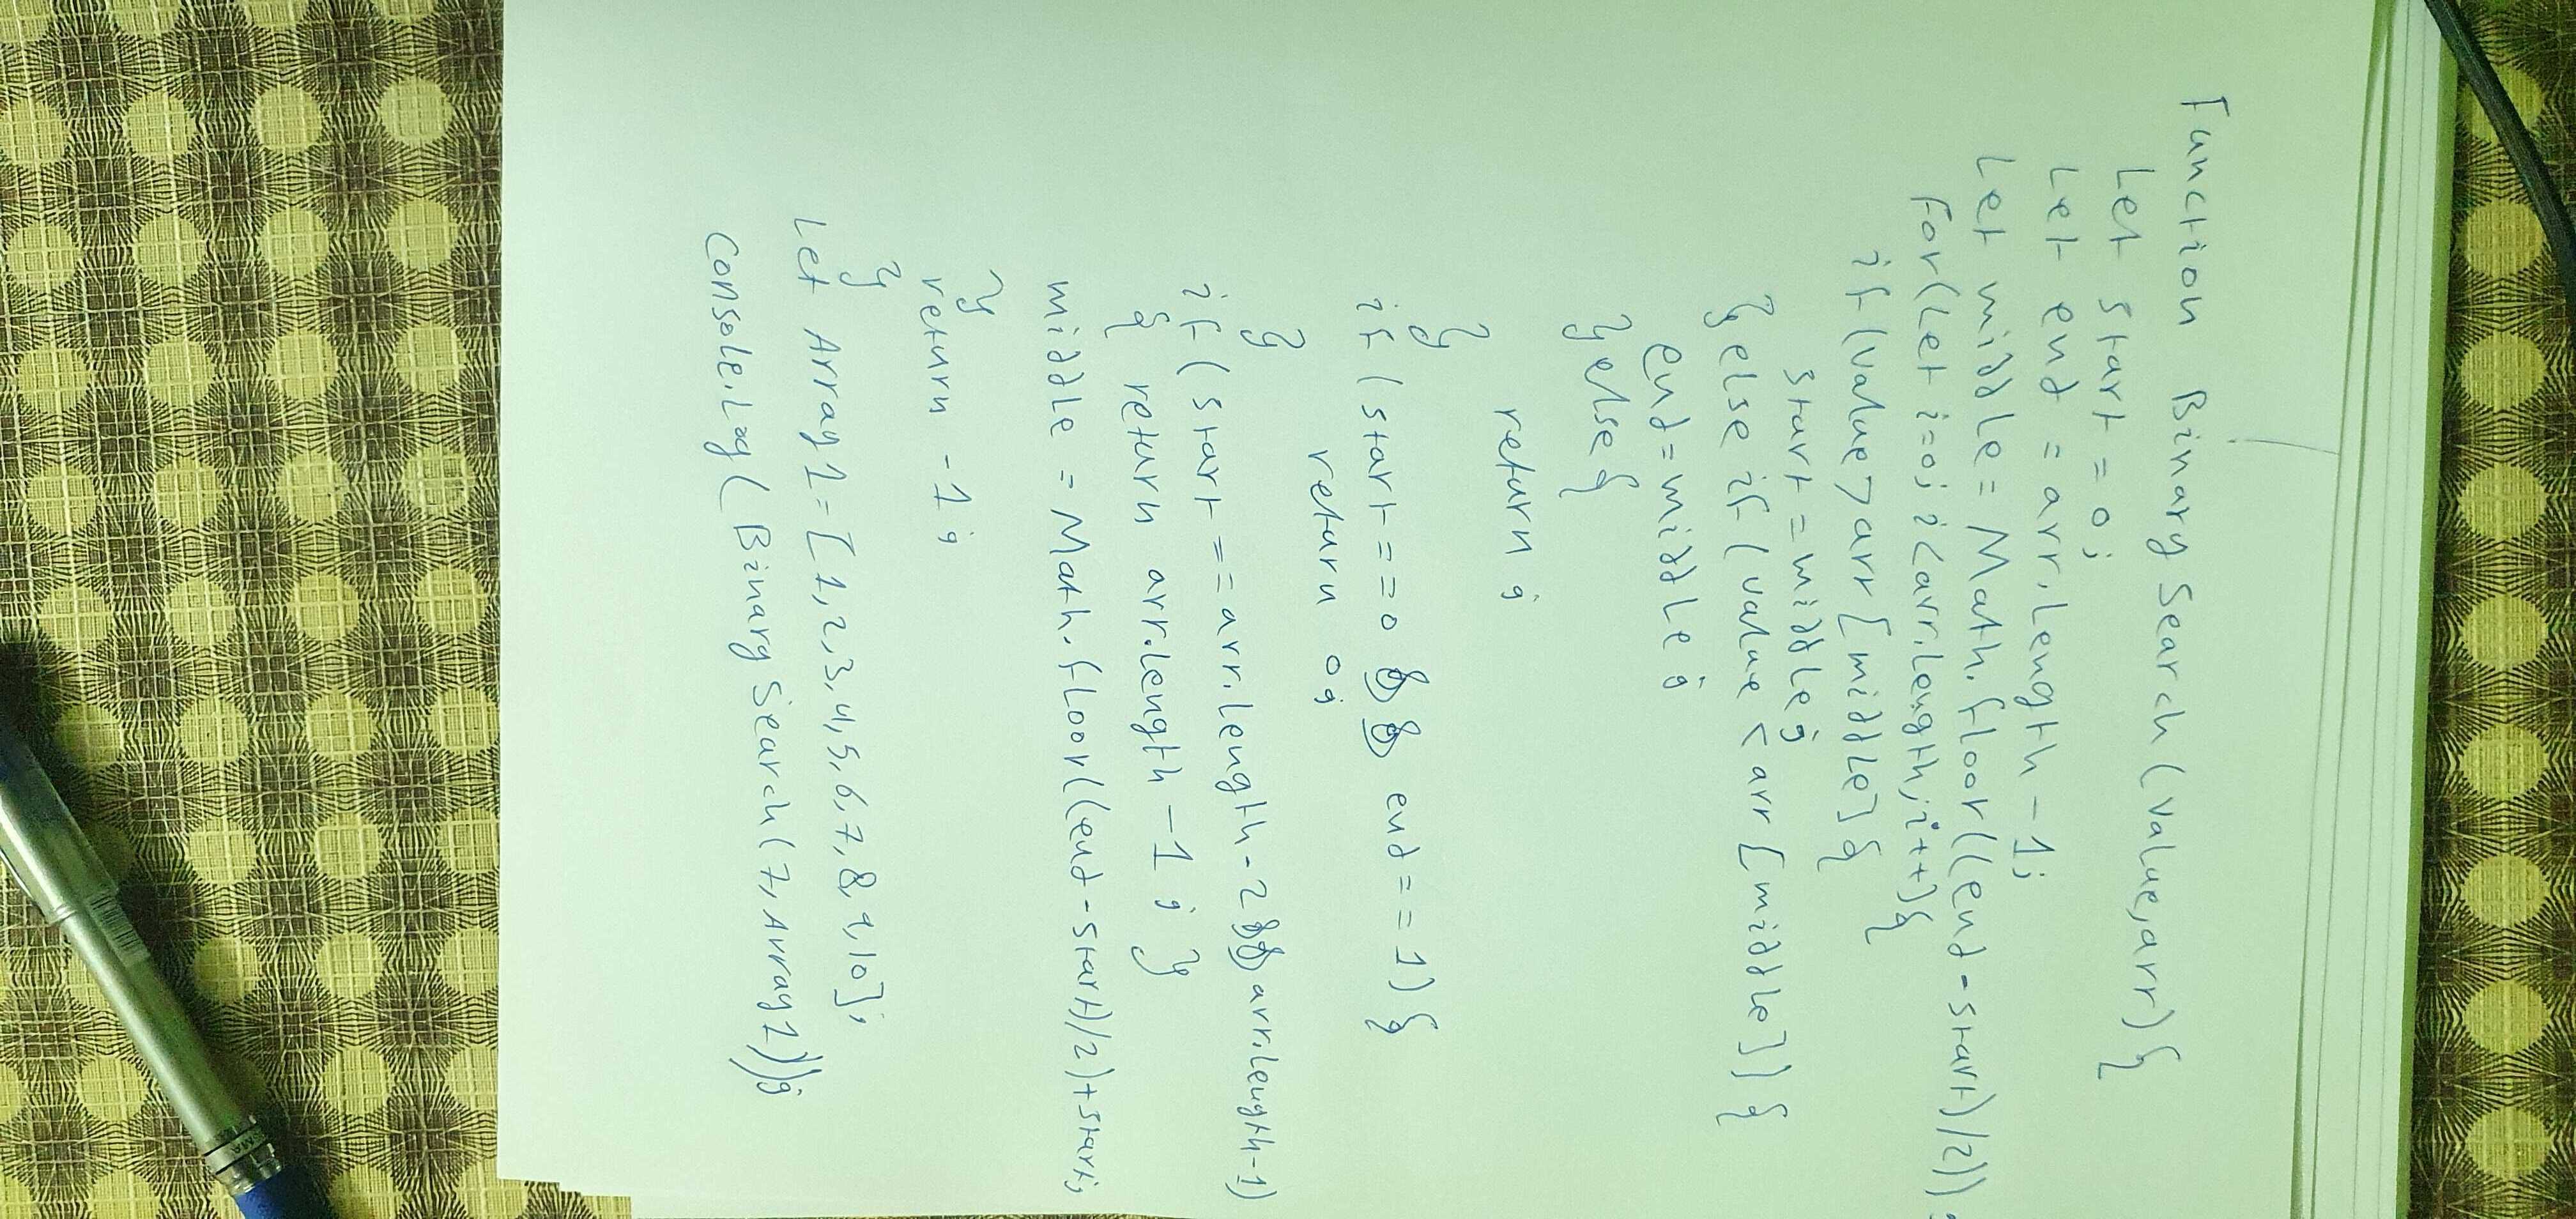 Function BinarySearch(value,arr){
Let start = 0;
Let end = arr.Length-1;
Let middle = Math.floor((end-start)/2));
For(Let i=0; i<arr.Length;i++){
if(value>arr[middle]{
start=middle;
}else if(value<arr[middle]){
end=middle;
}else{
return ;
}
if(start===0 && end===1){
return 0;
}
if(start==arr.length-2&&arr.length-1)
{ return arr.length-1;}
middle = Math.floor((end-start)/2)+start;
}
return -1;
}
Let Array1=[1,2,3,4,5,6,7,8,9,10];
Console.Log(BinarySearch(7,Array1));